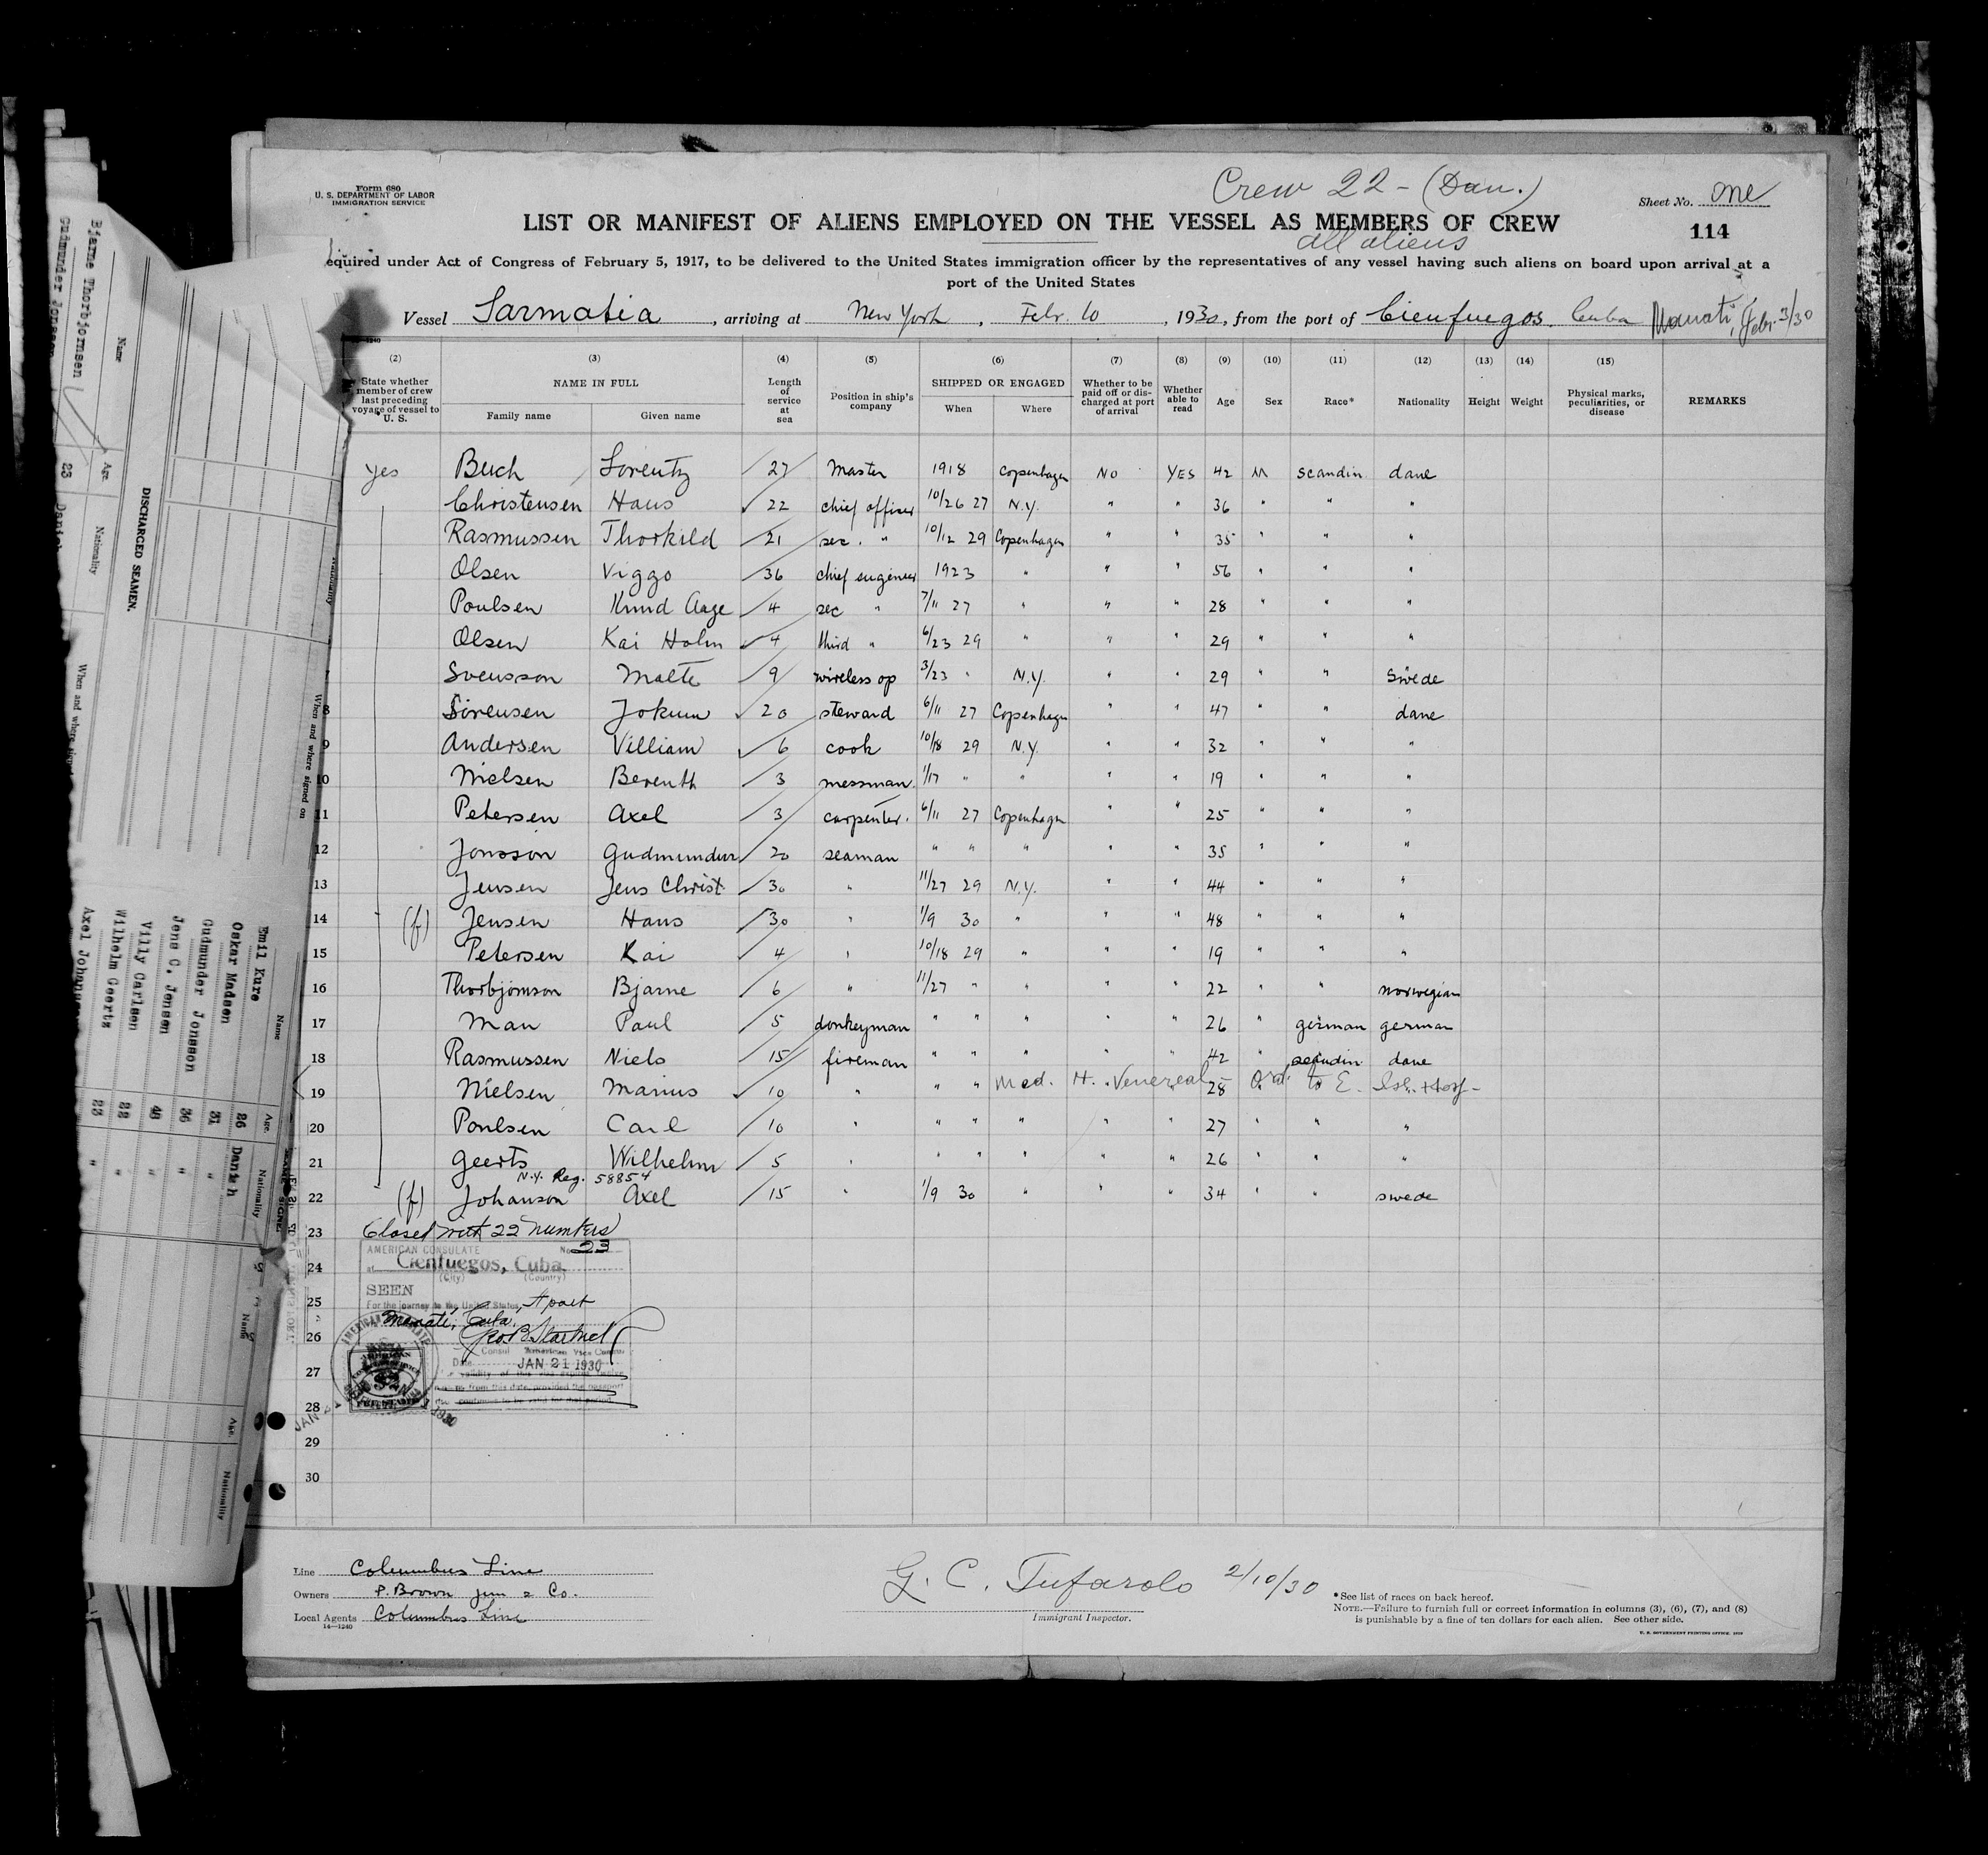 Form 680
U. S. DEPARTMENT OF LABOR
IMMIGRATION SERVICE
Crew 22 - (Dan.)
Sheet No. One
LIST OR MANIFEST OF ALIENS EMPLOYED ON THE VESSEL AS MEMBERS OF CREW
114
all aliens
equired under Act of Congress of February 5, 1917, to be delivered to the United States immigration officer by the representatives of any vessel having such aliens on board upon arrival at a
port of the United States
Vessel Sarmatia, arriving at New York, Febr. 10, 1930, from the port of Cienfuegos. Cuba Manati, Febr. 3/30
(2) (3) (4) (5) (6) (7) (8) (9) (10) (11) (12) (13) (14) (15)
State whether member of crew last preceding voyage of vessel to U. S.
NAME IN FULL
Family name
Given name
Length of service at sea
Position in ship's company
SHIPPED OR ENGAGED
When
Where
Whether to be paid off or discharged at port of arrival
Whether able to read
Age
Sex
Race*
Nationality
Height
Weight
Physical marks, peculiarities, or disease
REMARKS
yes Buch Lorentz 27 Master 1918 Copenhagen No YES 42 M Scandin dane
Christensen Hans 22 chief officer 10/26 27 N.Y. " " 36 " " "
Rasmussen Thorkild 21 sec. " 10/12 29 Copenhagen " " 35 " " "
Olsen Viggo 36 chief engineer 1923 " " " 56 " " "
Poulsen Knud Aage 4 sec " 7/11 27 " " " 28 " " "
Olsen Kai Holm 4 third " 6/23 29 " " " 29 " " "
Svensson Malte 9 wireless op 3/23 " N.Y. " " 29 " " Swede
8 Sörensen Jokum 20 steward 6/11 27 Copenhagen " " 47 " " dane
9 Andersen Villiam 6 cook 10/18 29 N.Y. " " 32 " " "
10 Nielsen Berenth 3 messman. 1/17 " " " " 19 " " "
11 Petersen Axel 3 carpenter. 6/11 27 Copenhagen " " 25 " " "
12 Jonsson Gudmundur 20 seaman " " " " " 35 " " "
13 Jensen Jens Christ. 30 " 11/27 29 N.Y. " " 44 " " "
14 (f) Jensen Hans 30 " 1/9 30 " " " 48 " " "
15 Petersen Kai 4 " 10/18 29 " " " 19 " " "
16 Thorbjörnson Bjarne 6 " 11/27 " " " " 22 " " norwegian
17 Man Paul 5 donkeyman " " " " " 26 " german german
18 Rasmussen Niels 15 fireman " " " " " 42 " scandin dane
19 Nielsen Marius 10 " " " Med. H. Venereal 28 Ord. to E. Isl. Hosp-
20 Poulsen Carl 10 " " " " " " 27 " " "
21 Geerts Wilhelm 5 " " " " " " 26 " " "
N.Y. Reg. 58854
22 (f) Johanson Axel 15 " 1/9 30 " " " 34 " " swede
23 Closed with 22 numbers
AMERICAN CONSULATE No. 23
24 at Cienfuegos, Cuba.
(City) (Country)
SEEN
25 For the journey to the United States,
Manati, Cuba.
26
Consul American Vice Consul
27 Date JAN 21 1930
28
29
30
Line Columbus Line
Owners P. Brown jun & Co.
Local Agents Columbus Line
14—1240
G. C. Tufarolo 2/10/30
Immigrant Inspector.
*See list of races on back hereof.
NOTE.—Failure to furnish full or correct information in columns (3), (6), (7), and (8)
is punishable by a fine of ten dollars for each alien. See other side.
U. S. GOVERNMENT PRINTING OFFICE
DISCHARGED SEAMEN.
Name Age. Nationality When and where signed
Bjarne Thorbjornsen 23
Gudmunder Jonsson Danish
When and where signed on
Name Age. Nationality
Emil Kure
Oskar Madsen 26 Danish
Gudmunder Jonsson 31 "
Jens C. Jensen 36 "
Villy Carlsen 40 "
Wilhelm Geertz 22 "
Axel Johannsen 23 "
Name Age. Nationality